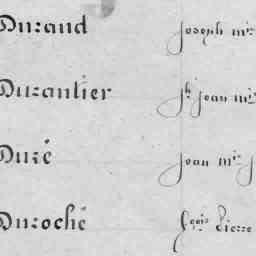 Durand joseph mre
Durantier jh jean mre
Duré jean mre
Duroché fçois Pierre